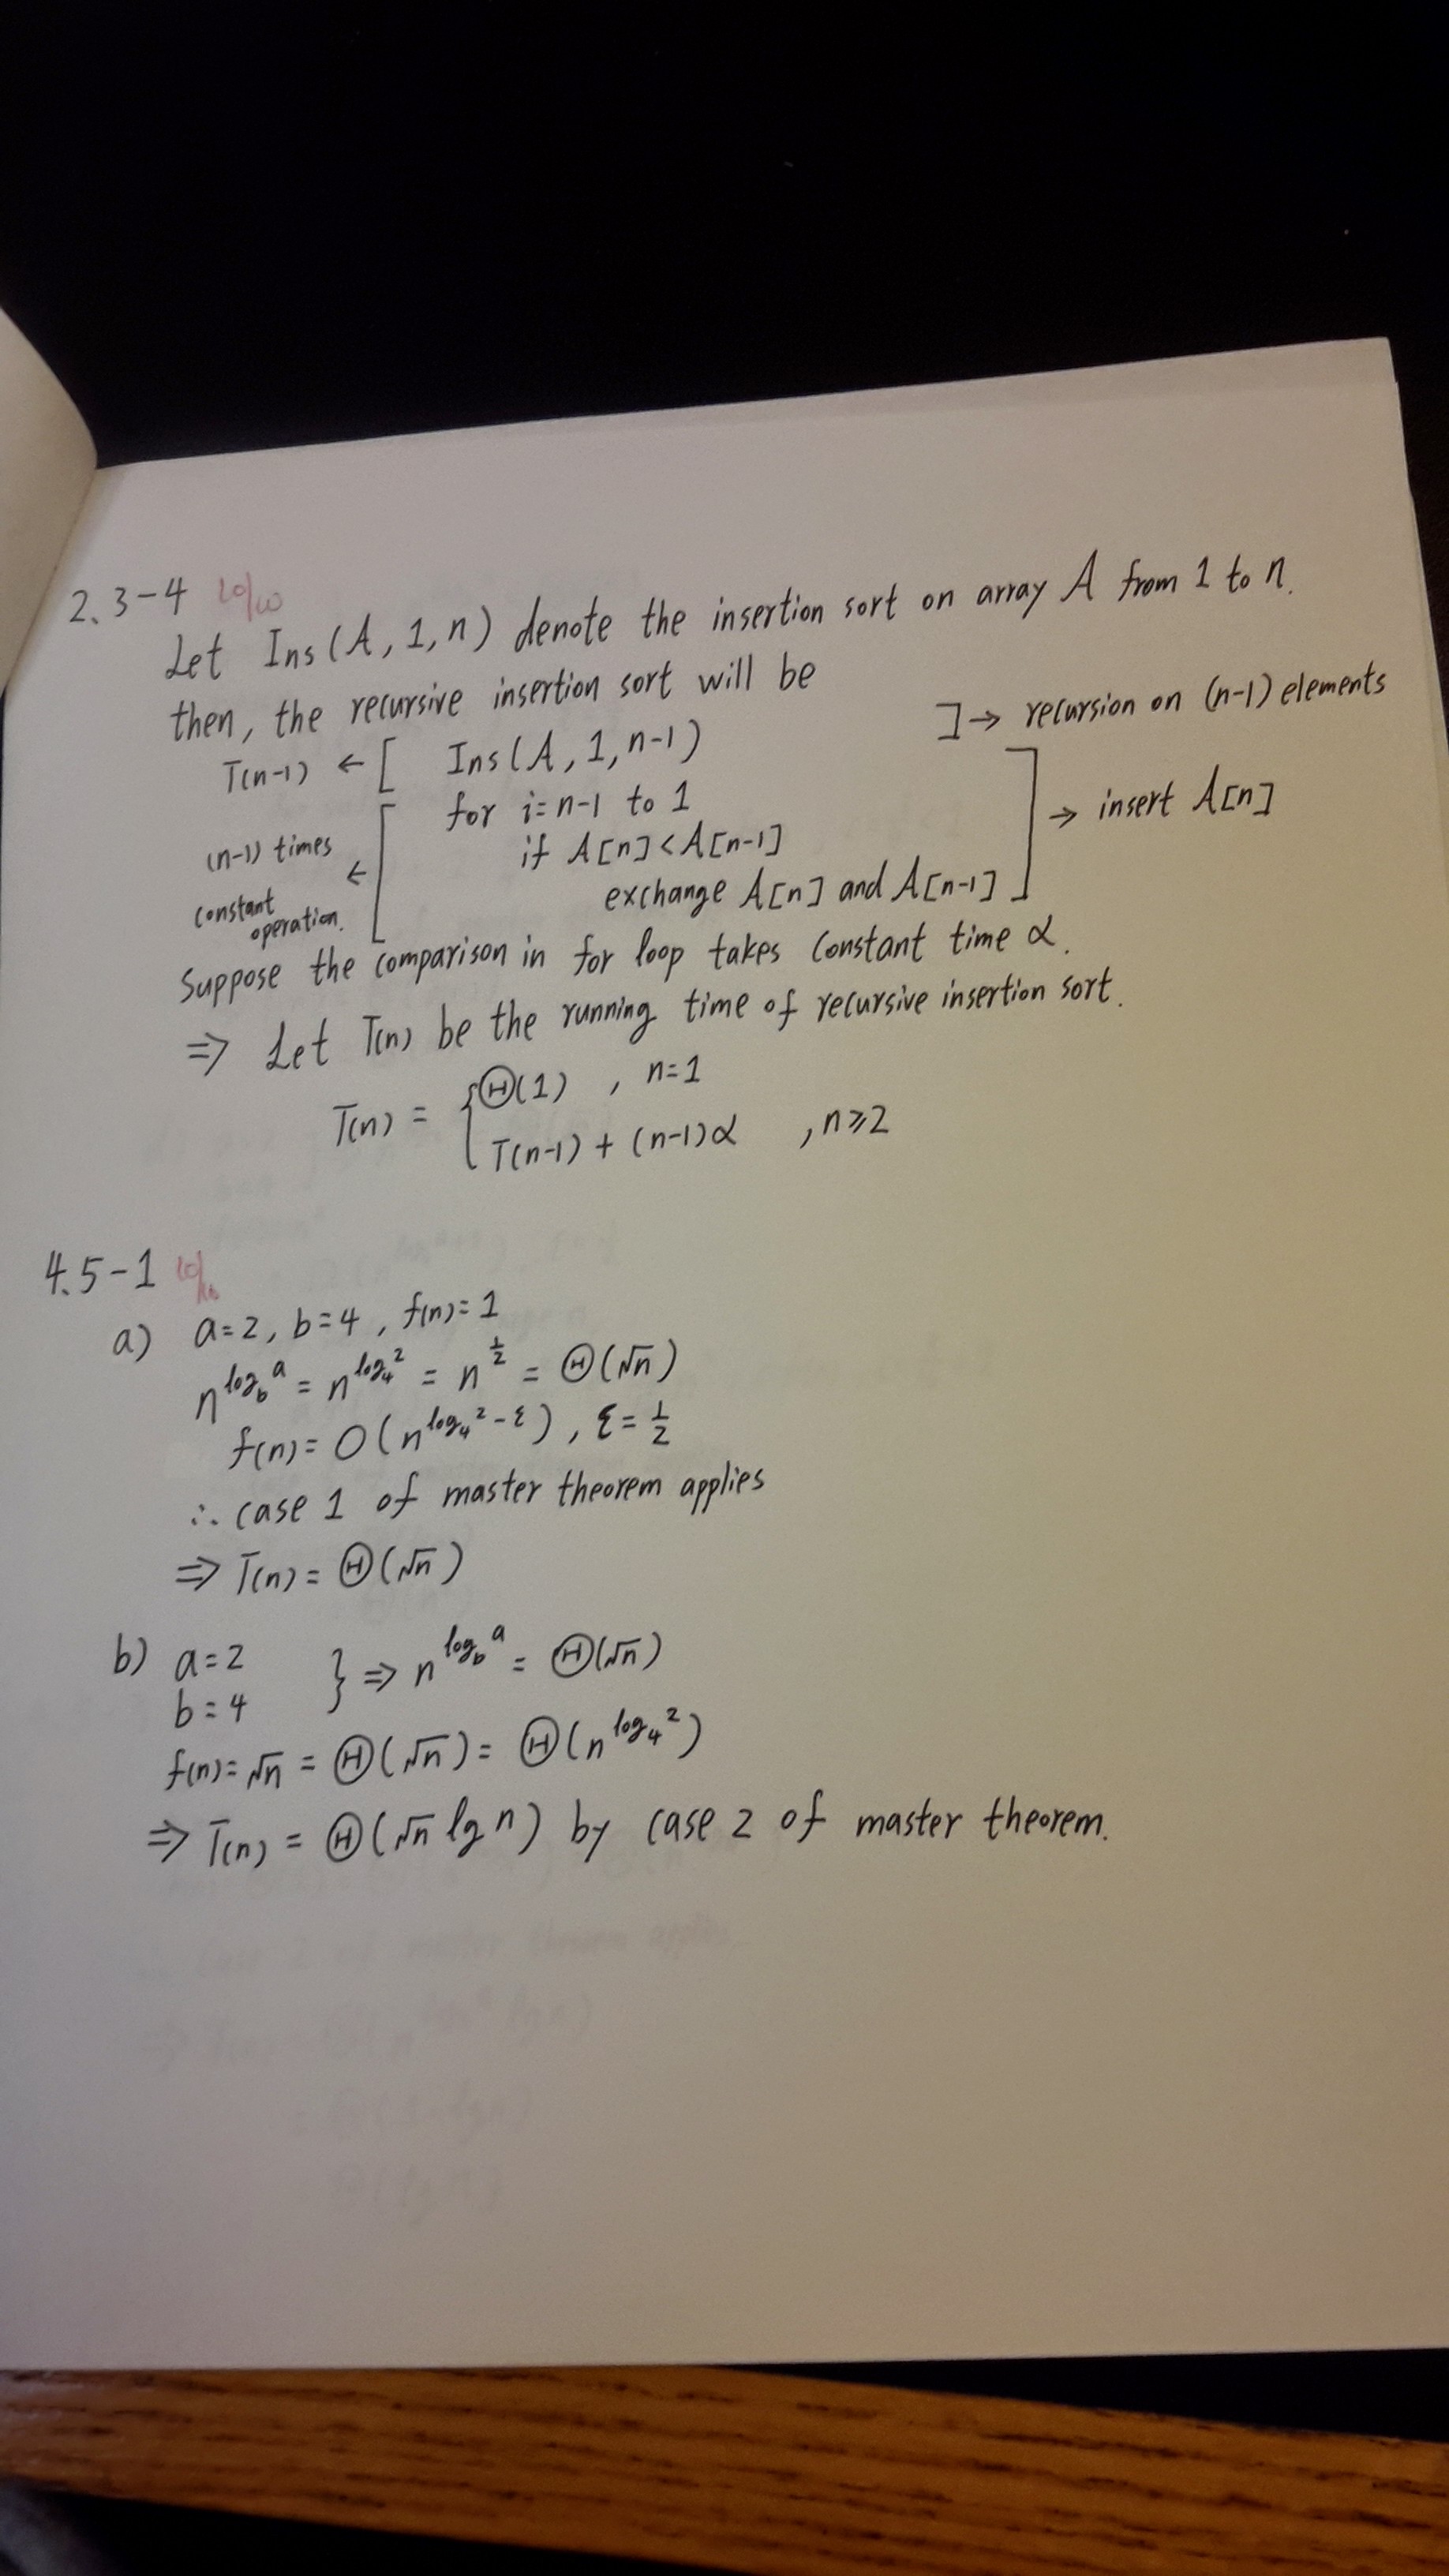 2.3-4 10/10
Let Ins(A, 1, n) denote the insertion sort on array A from 1 to n.
then, the recursive insertion sort will be
T(n-1) ← [ Ins(A, 1, n-1) ] → recursion on (n-1) elements
for i=n-1 to 1
(n-1) times
constant
operation.
←
if A[n]<A[n-1]
→ insert A[n]
exchange A[n] and A[n-1]
Suppose the comparison in for loop takes constant time α.
⇒ Let T(n) be the running time of recursive insertion sort.
T(n) = { Θ(1) , n=1
T(n-1) + (n-1)α , n≥2
4.5-1 10/10
a) a=2, b=4, f(n)=1
n^{log_b a} = n^{log_4 2} = n^{1/2} = Θ(√n)
f(n)= O(n^{log_4 2 - ε}), ε= 1/2
∴ case 1 of master theorem applies
⇒ T(n) = Θ(√n)
b) a=2
b=4
} ⇒ n^{log_b a} = Θ(√n)
f(n)= √n = Θ(√n) = Θ(n^{log_4 2})
⇒ T(n) = Θ(√n lg n) by case 2 of master theorem.